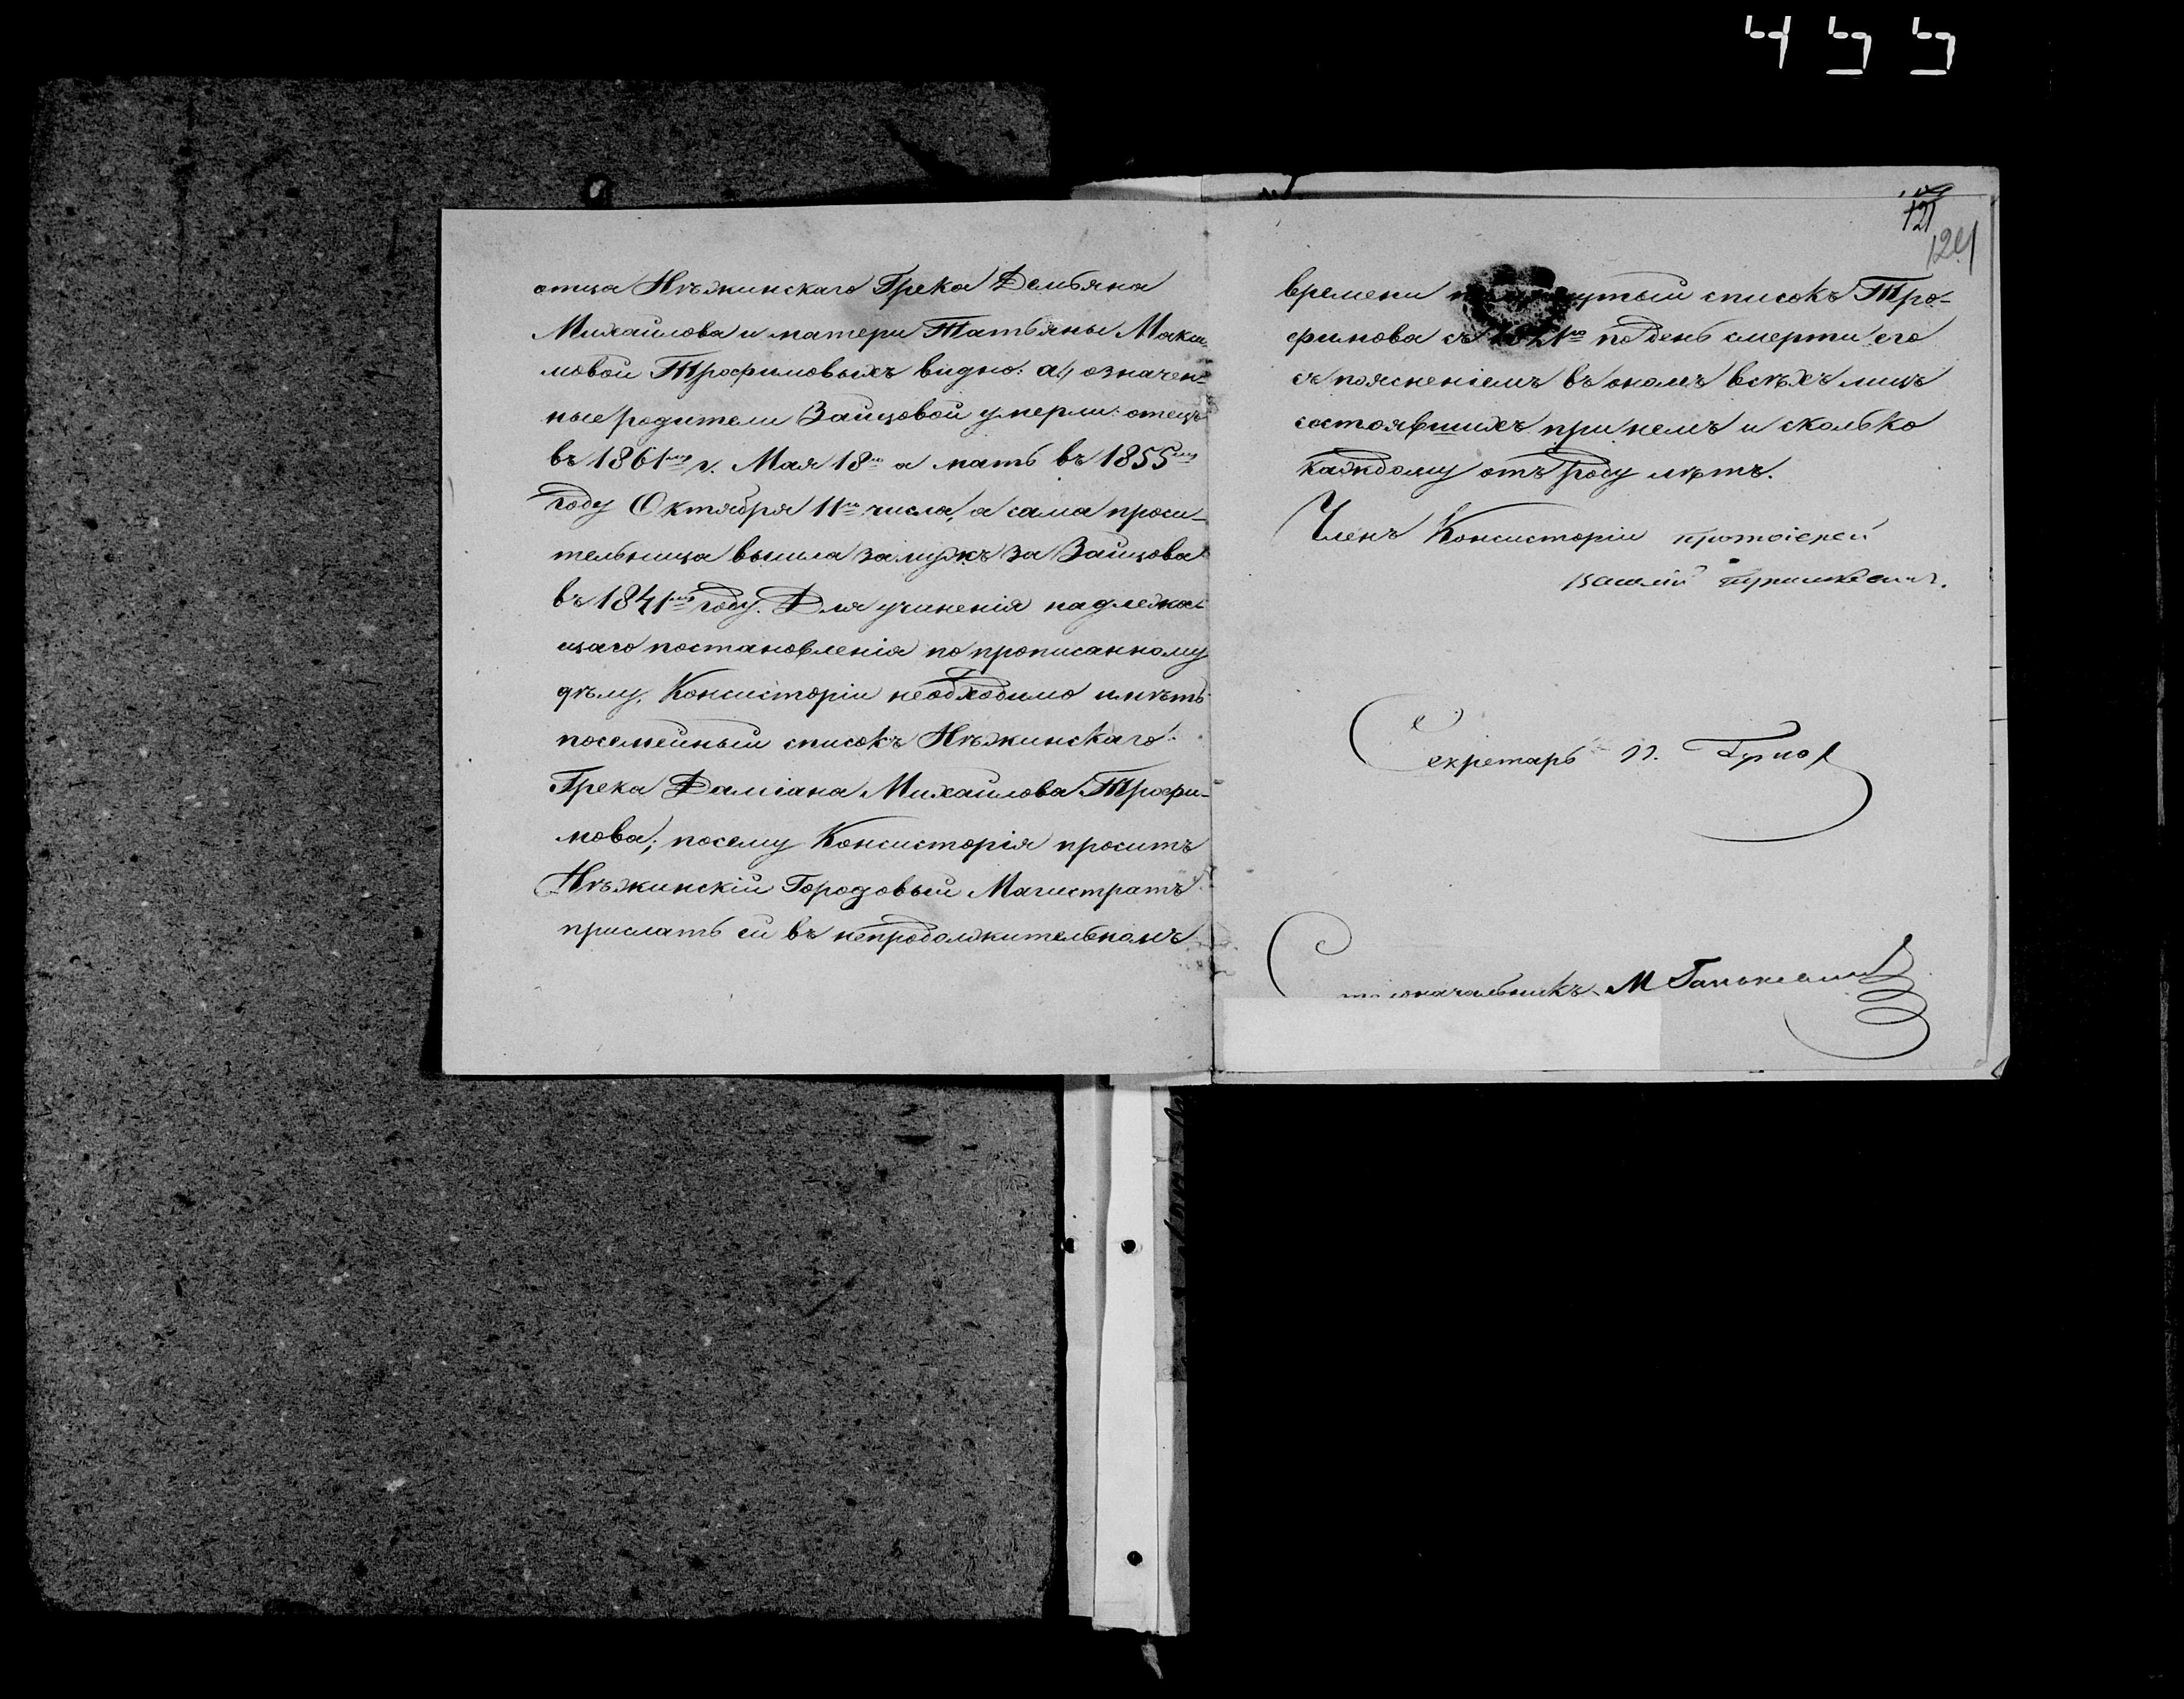 отца Нѣжинскаго Грека Демьяна
Михайлова и матери Татьяны Маки-
мовой Трофимовыхъ видно: а) означен-
ные родители Зайцовой умерли: отецъ
въ 1861мъ г. Мая 18го а мать въ 1855мъ
году Октября 11го числа, а сама проси-
тельница вышла замужъ за Зайцова
въ 1841мъ году. Для учиненія надлежа-
щаго постановленія по прописанному
дѣлу, Консисторіи необходимо имѣть
посемейный списокъ Нѣжинскаго
Грека Даміана Михайлова Трофи-
мова; посему Консисторія проситъ
Нѣжинскій Городовый Магистратъ
прислать ей въ непродолжительномъ
121
времени списокъ Тро-
фимова съ по день смерти его
съ поясненіемъ въ ономъ всѣхъ лицъ
состоявшихъ при немъ и сколько
каждому отъ роду лѣтъ.
Членъ Консисторіи протоіерей
Василій
Секретарь
Столоначальникъ М